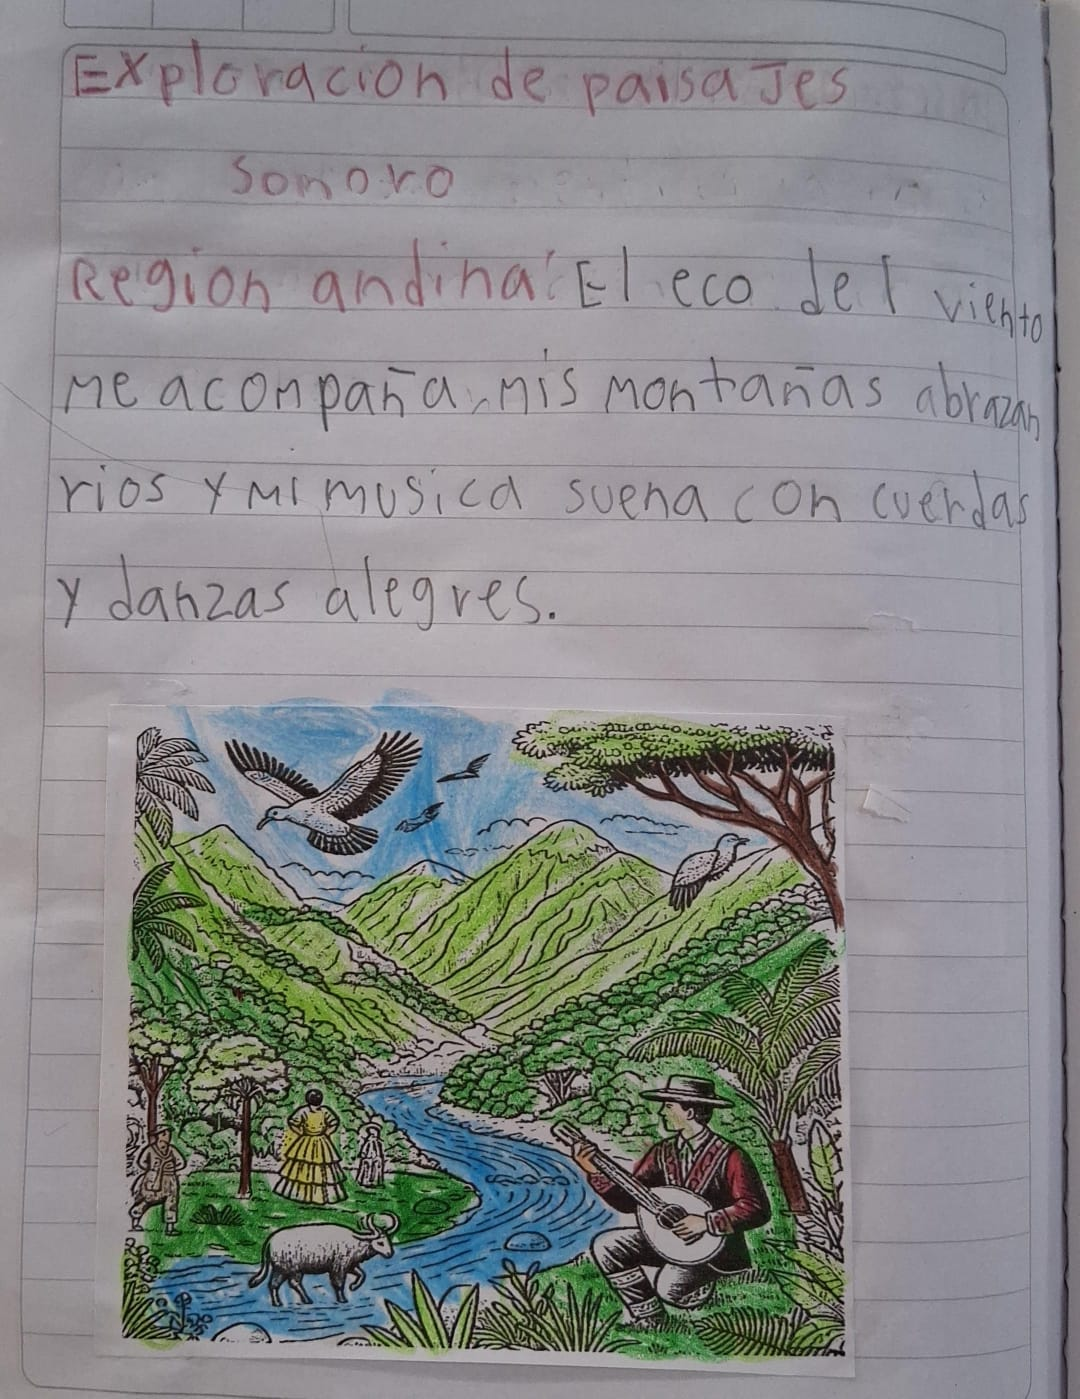 Exploracion de paisaJes
Sonoro
Region andina: El eco del viento
Me acompaña, mis montañas abrazan
rios y mi musica suena con cuerdas
y danzas alegres.